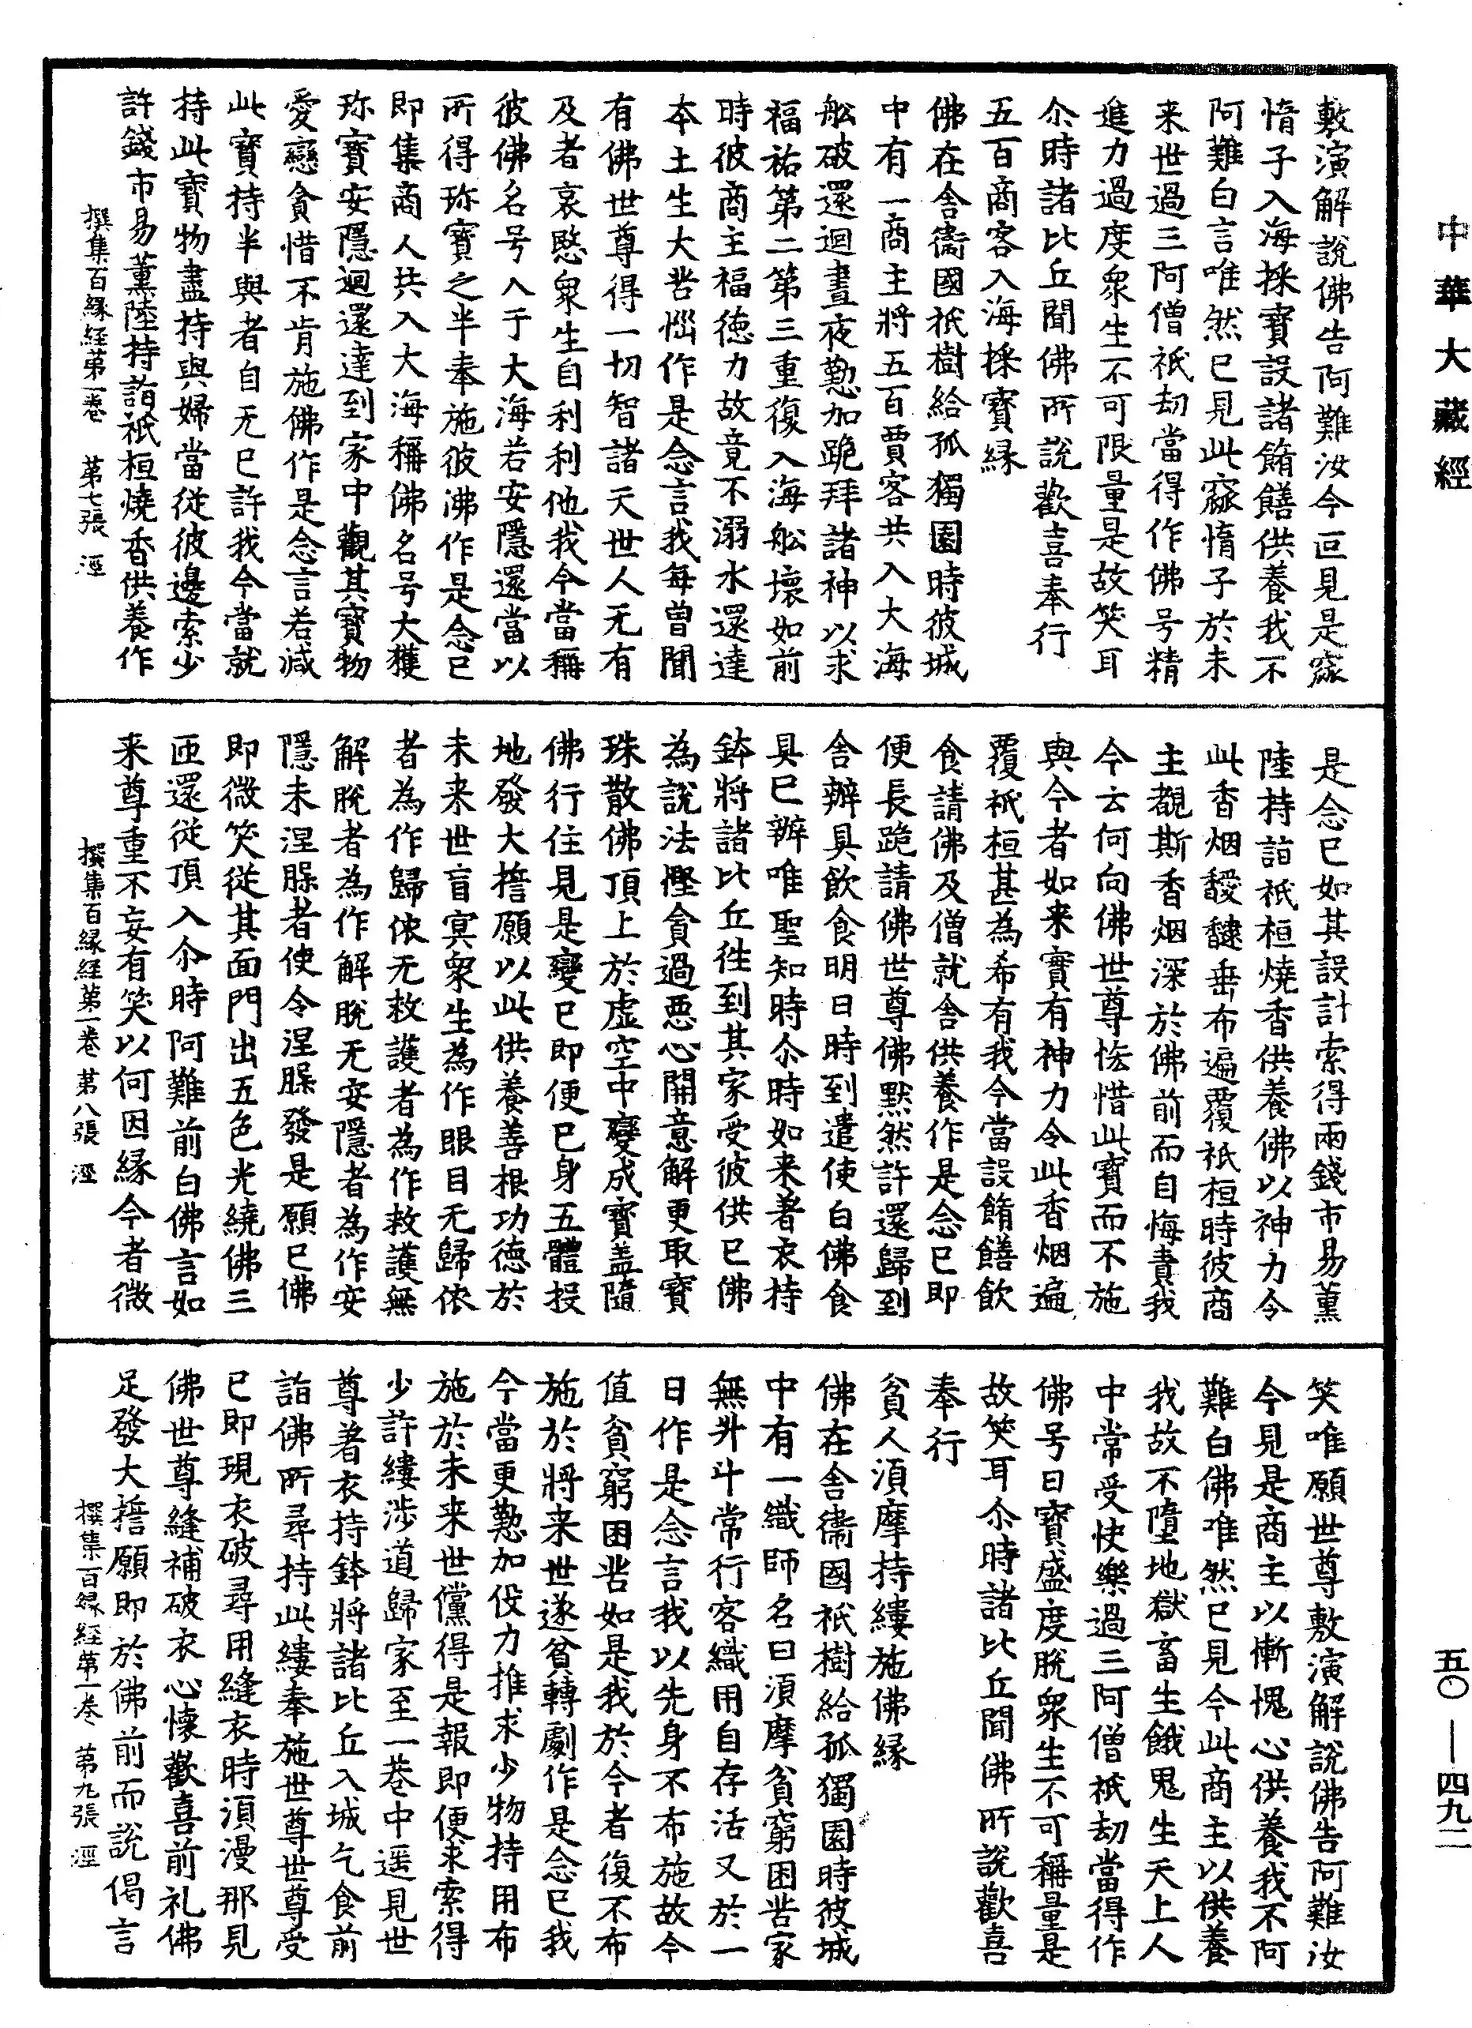 中華大藏經
敷演解說佛告阿難汝今叵見是窳
惰子入海採寶設諸餚饍供養我不
阿難白言唯然已見此窳惰子於未
来世過三阿僧祇劫當得作佛号精
進力過度衆生不可限量是故笑耳
尒時諸比丘聞佛所說歡喜奉行
五百商客入海採寶緣
佛在舍衞國祇樹給孤獨園時彼城
中有一商主將五百賈客共入大海
舩破還迴晝夜懃加跪拜諸神以求
福祐第二第三重復入海舩壞如前
時彼商主福德力故竟不溺水還達
本土生大苦惱作是念言我每曾聞
有佛世尊得一切智諸天世人无有
及者哀愍衆生自利利他我今當稱
彼佛名号入于大海若安隱還當以
所得珎寶之半奉施彼佛作是念已
即集商人共入大海稱佛名号大獲
珎寶安隱迴還達到家中觀其寶物
愛戀貪惜不肯施佛作是念言若減
此寶持半與者自无已許我今當就
持此寶物盡持與婦當從彼邊索少
許錢市易薰陸持詣祇桓燒香供養作
撰集百緣経第一卷 第七張 溼
是念已如其設計索得兩錢市易薰
陸持詣祇桓燒香供養佛以神力令
此香烟靉靆垂布遍覆祇桓時彼商
主覩斯香烟深於佛前而自悔責我
今云何向佛世尊恡惜此寶而不施
與今者如来實有神力令此香烟遍
覆祇桓甚為希有我今當設餚饍飲
食請佛及僧就舍供養作是念已即
便長跪請佛世尊佛默然許還歸到
舍辦具飲食明日時到遣使白佛食
具已辦唯聖知時尒時如来著衣持
鉢將諸比丘往到其家受彼供已佛
為說法慳貪過惡心開意解更取寶
珠散佛頂上於虛空中變成寶盖隨
佛行住見是變已即便已身五體投
地發大擔願以此供養善根功德於
未来世盲冥衆生為作眼目无歸依
者為作歸依无救護者為作救護無
解脫者為作解脫无安隱者為作安
隱未涅槃者使令涅槃發是願已佛
即微笑從其面門出五色光繞佛三
迊還從頂入尒時阿難前白佛言如
来尊重不妄有笑以何因緣今者微
撰集百緣経第一卷 第八張 溼
笑唯願世尊敷演解說佛告阿難汝
今見是商主以慚愧心供養我不阿
難白佛唯然已見今此商主以供養
我故不墮地獄畜生餓鬼生天上人
中常受快樂過三阿僧祇劫當得作
佛号曰寶盛度脫衆生不可稱量是
故笑耳尒時諸比丘聞佛所說歡喜
奉行
貧人湏摩持縷施佛緣
佛在舍衞國祇樹給孤獨園時彼城
中有一織師名曰湏摩貧窮困苦家
無升斗常行客織用自存活又於一
日作是念言我以先身不布施故今
值貧窮困苦如是我於今者復不布
施於將来世遂貧轉劇作是念已我
今當更懃加役力推求少物持用布
施於未来世儻得是報即便求索得
少許縷涉道歸家至一巷中遥見世
尊著衣持鉢將諸比丘入城乞食前
詣佛所尋持此縷奉施世尊世尊受
已即現衣破尋用縫衣時湏漫那見
佛世尊縫補破衣心懷歡喜前礼佛
足發大擔願即於佛前而說偈言
撰集百緣経第一卷 第九張 溼
五〇—四九二